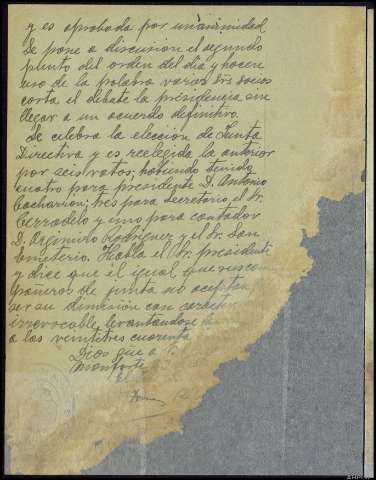 y es aprobada por unanimidad
Se pone a discusion el segundo
punto del orden del dia y hacen
uso de la palabra varios socios
corta el debate la presidencia sin
llegar a un acuerdo definitivo.
Se celebra la elección de Junta
Directiva y es reelegida la anterior
por seis votos; habiendo tenido
cuatro para presidente D. Antonio
Cacharron; tres para Secretario el Sr.
Cerradelo y uno para contador
D. Argimiro Rodriguez y el Sr. San
Emeterio. Habla el Sr. presidente
y dice que él igual que sus com
pañeros de junta no aceptan
ser su dimisión con caracter
irrevocable, levantandose
a las veintitres cuarenta
Dios que a
Monforte